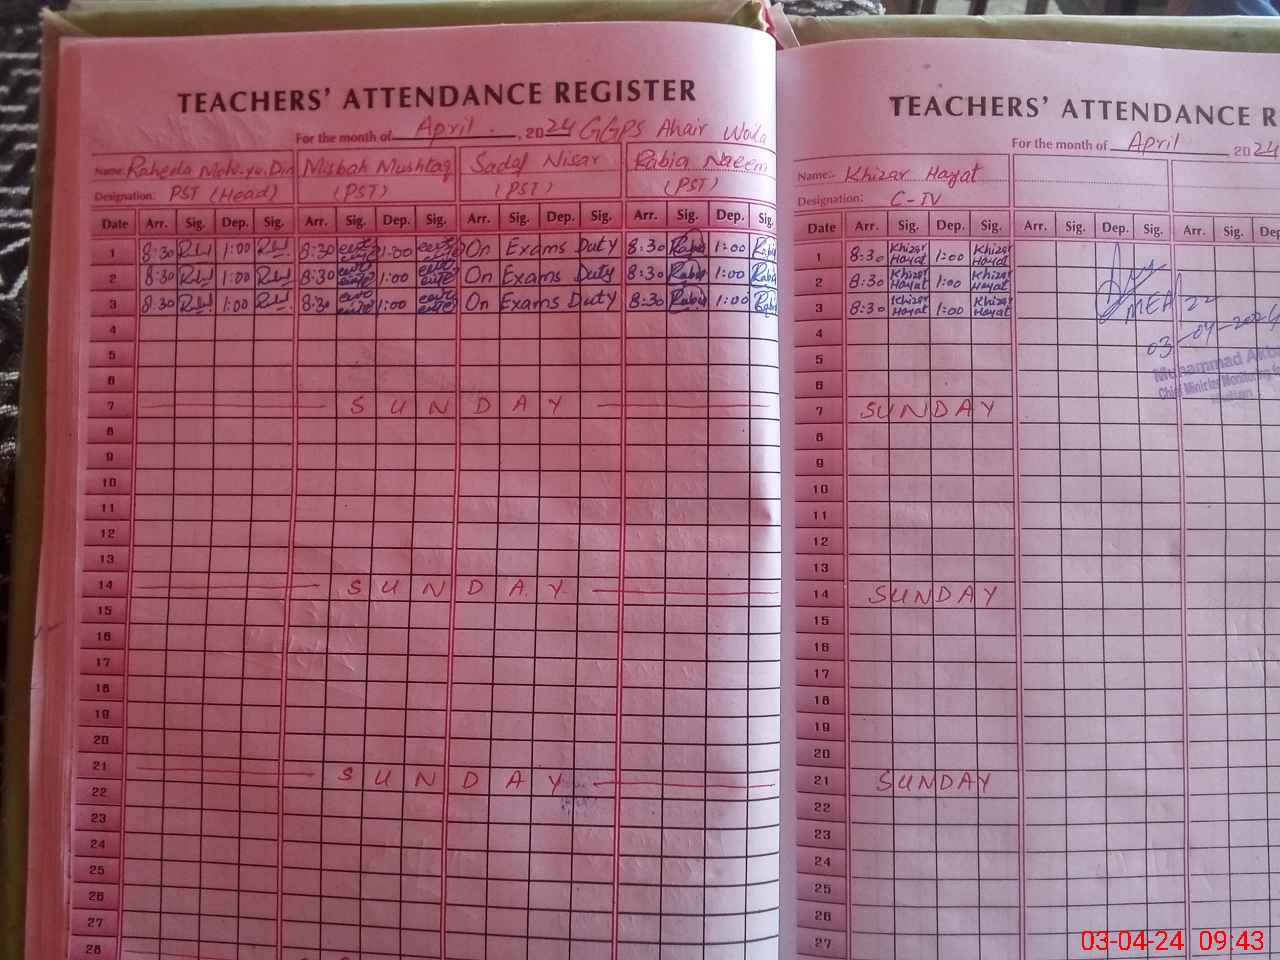 TEACHERS' ATTENDANCE REGISTER
For the month of April, 2024 GGPS Ahair Wala
Name: Raheda Moh-yu-Din Misbah Mushtaq Sadaf Nisar Rabia Naeem
Designation: PST (Head) (PST) (PST) (PST)
Date Arr. Sig. Dep. Sig. Arr. Sig. Dep. Sig. Arr. Sig. Dep. Sig. Arr. Sig. Dep. Sig.
1 8:30 1:00 8:30 1:00 On Exams Duty 8:30 Rabia 1:00 Rabia
2 8:30 1:00 8:30 1:00 On Exams Duty 8:30 Rabia 1:00 Rabia
3 8:30 1:00 8:30 1:00 On Exams Duty 8:30 Rabia 1:00 Rabia
4
5
6
7 SUNDAY
8
9
10
11
12
13
14 SUNDAY
15
16
17
18
19
20
21 SUNDAY
22
23
24
25
26
27
28
TEACHERS' ATTENDANCE R
For the month of April 2024
Name:- Khizar Hayat
Designation: C-IV
Date Arr. Sig. Dep. Sig. Arr. Sig. Dep. Sig. Arr. Sig. Dep
1 8:30 Khizar Hayat 1:00 Khizar Hayat
2 8:30 Khizar Hayat 1:00 Khizar Hayat
3 8:30 Khizar Hayat 1:00 Khizar Hayat
MEA 22
03-04-2024
Muhammad
Chief Minister Monitoring
4
5
6
7 SUNDAY
8
9
10
11
12
13
14 SUNDAY
15
16
17
18
19
20
21 SUNDAY
22
23
24
25
26
27
03-04-24 09:43